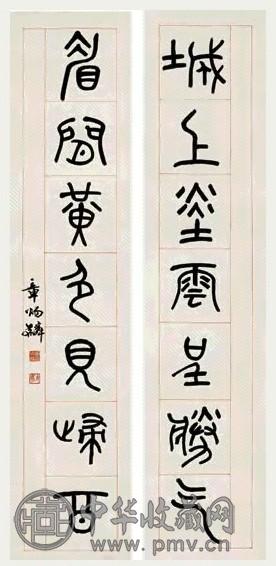 城上赤雲呈勝氣
眉間黃色見歸期
章炳麟
中华收藏网
www.pmv.cn